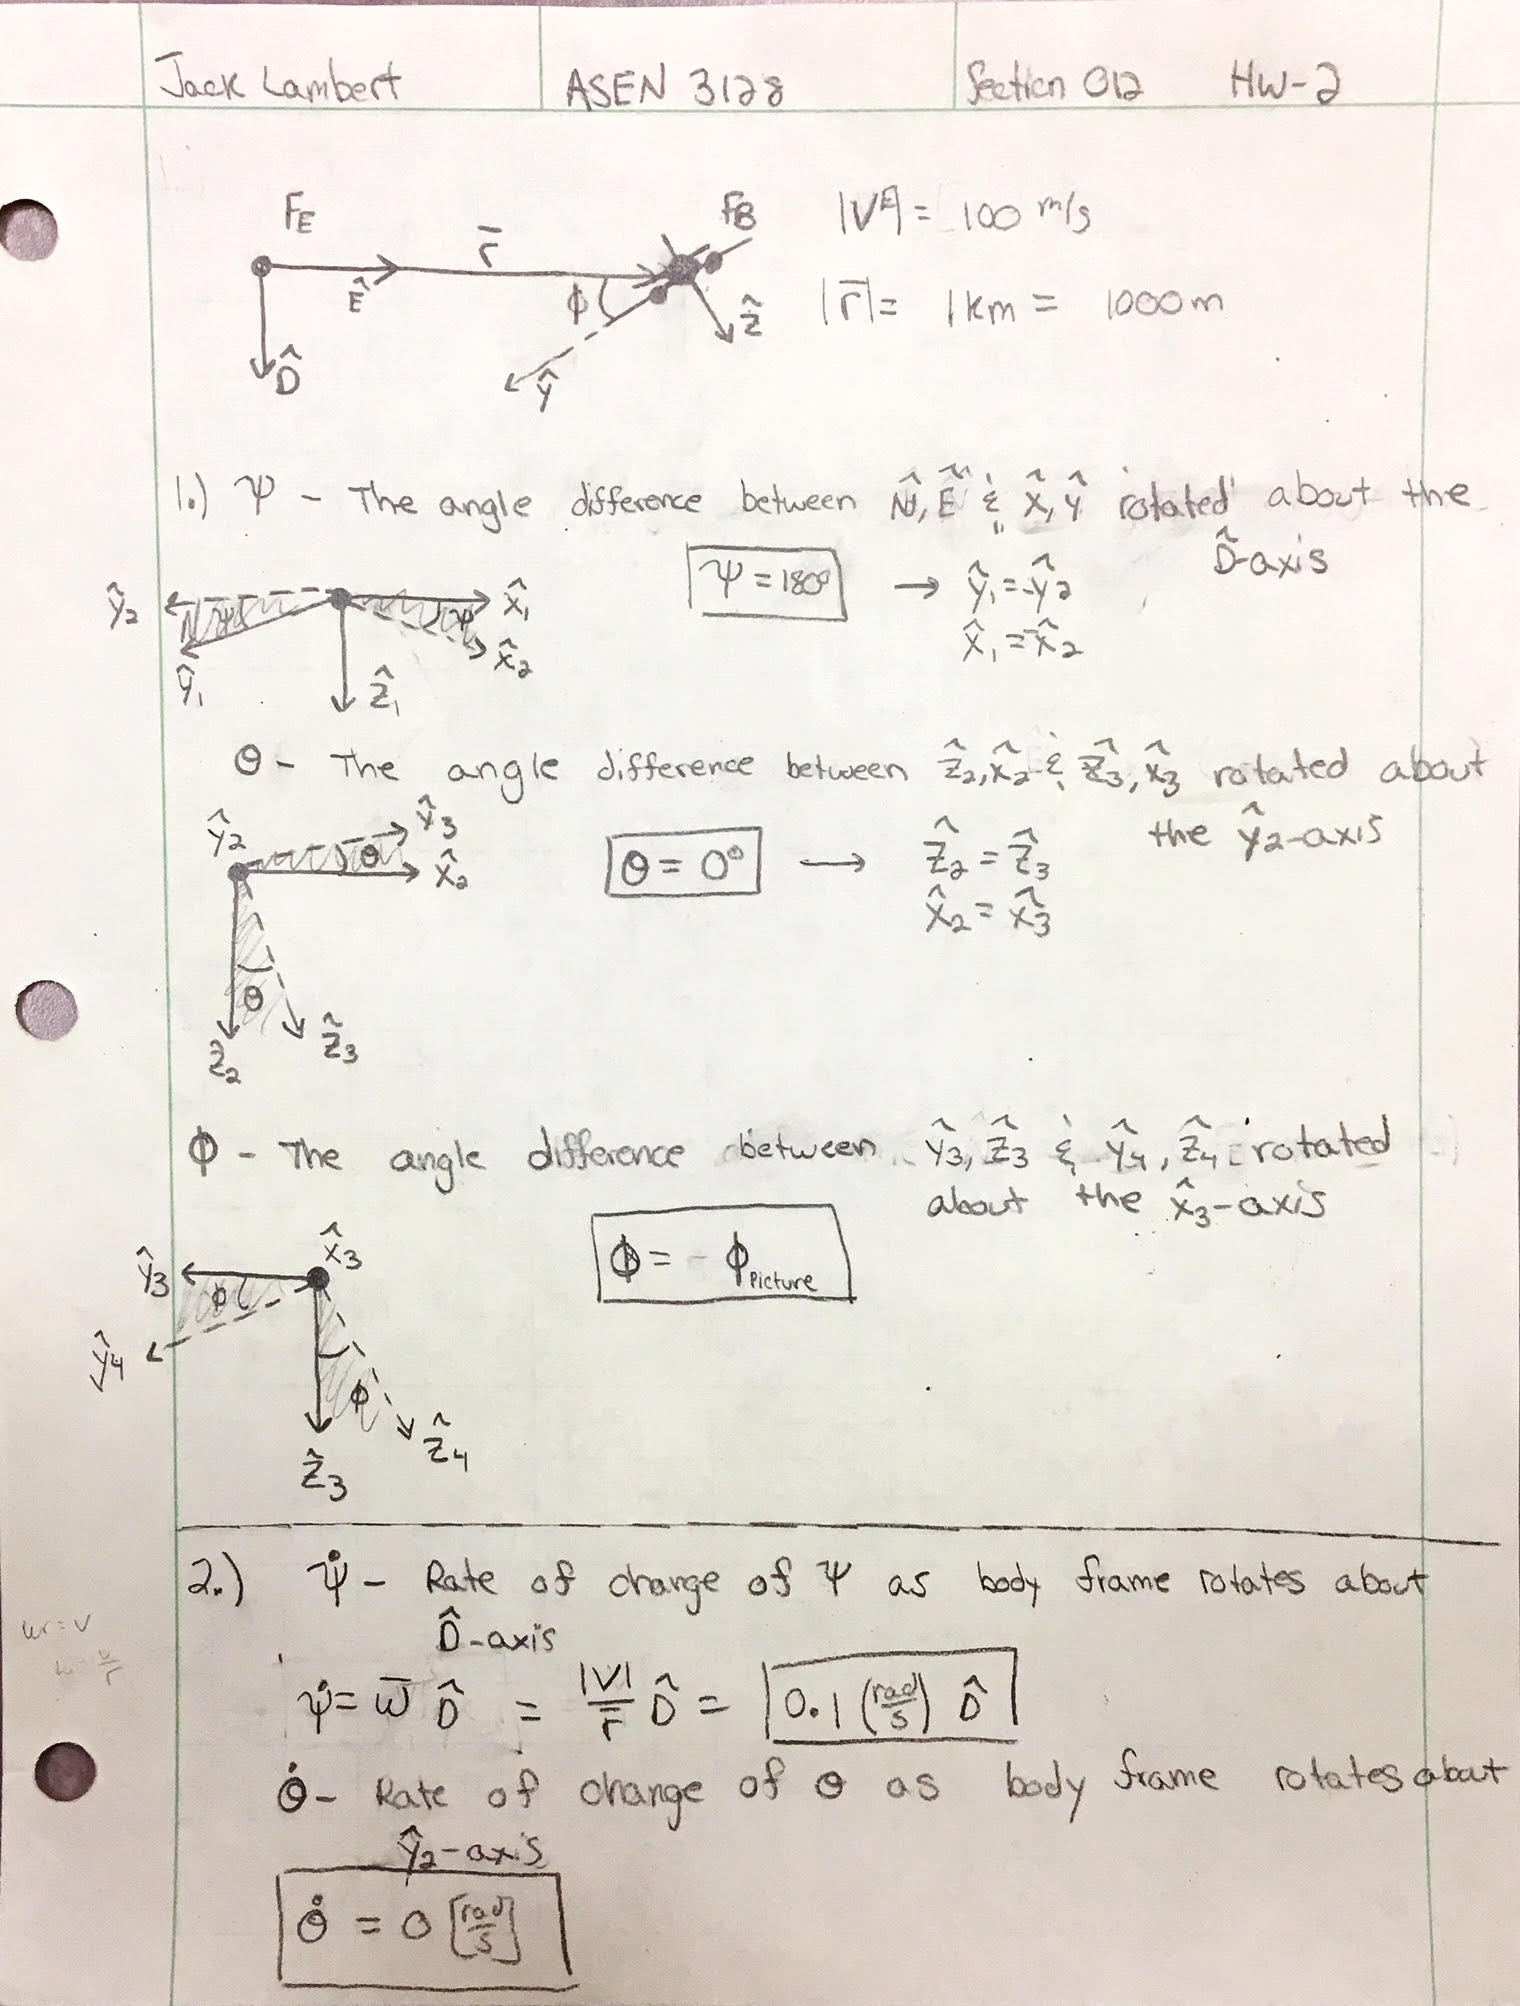 Jack Lambert ASEN 3128 Section 012 HW-2
F_E r̄ F_B |V^E| = 100 m/s
Ê ϕ ẑ |r̄| = 1 km = 1000 m
D̂ ŷ
1.) Ψ - The angle difference between N̂, Ê & x̂, ŷ rotated about the
D̂-axis
Ψ = 180° → ŷ₁ = -ŷ₂
x̂₁ = -x̂₂
ŷ₂ Ψ Ψ x̂₁
ŷ₁ ẑ₁ x̂₂
θ - The angle difference between ẑ₂, x̂₂ & ẑ₃, x̂₃ rotated about
the ŷ₂-axis
ŷ₂ θ ŷ₃ x̂₂
θ = 0° → ẑ₂ = ẑ₃
x̂₂ = x̂₃
θ
ẑ₂ ẑ₃
ϕ - The angle difference between ŷ₃, ẑ₃ & ŷ₄, ẑ₄ rotated
about the x̂₃-axis
ŷ₃ ϕ x̂₃
ϕ = - ϕ_Picture
ŷ₄ ϕ
ẑ₃ ẑ₄
2.) Ψ̇ - Rate of change of Ψ as body frame rotates about
D̂-axis
wr = v
w = v/r
Ψ̇ = ω̄ D̂ = |V|/r̄ D̂ = 0.1 (rad/s) D̂
θ̇ - Rate of change of θ as body frame rotates about
ŷ₂-axis
θ̇ = 0 [rad/s]